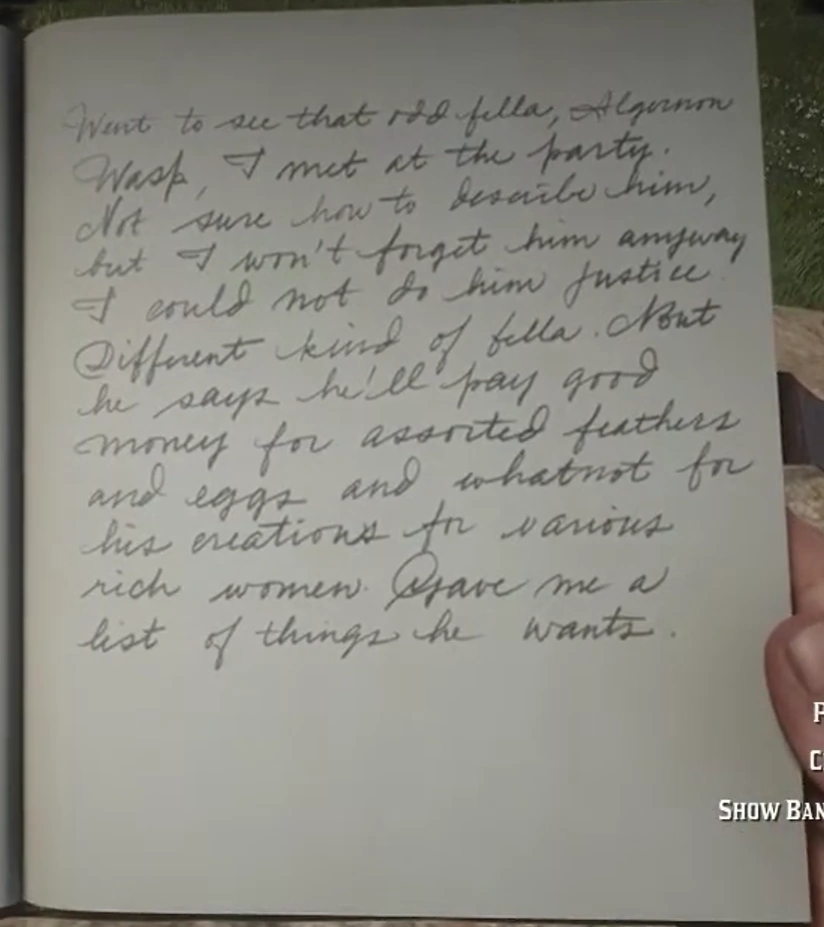 Went to see that odd fella, Algernon
Wasp, I met at the party.
Not sure how to describe him,
but I won't forget him anyway
I could not do him justice.
Different kind of fella. But
he says he'll pay good
money for assorted feathers
and eggs and whatnot for
his creations for various
rich women. Gave me a
list of things he wants.
P
C
SHOW BAN